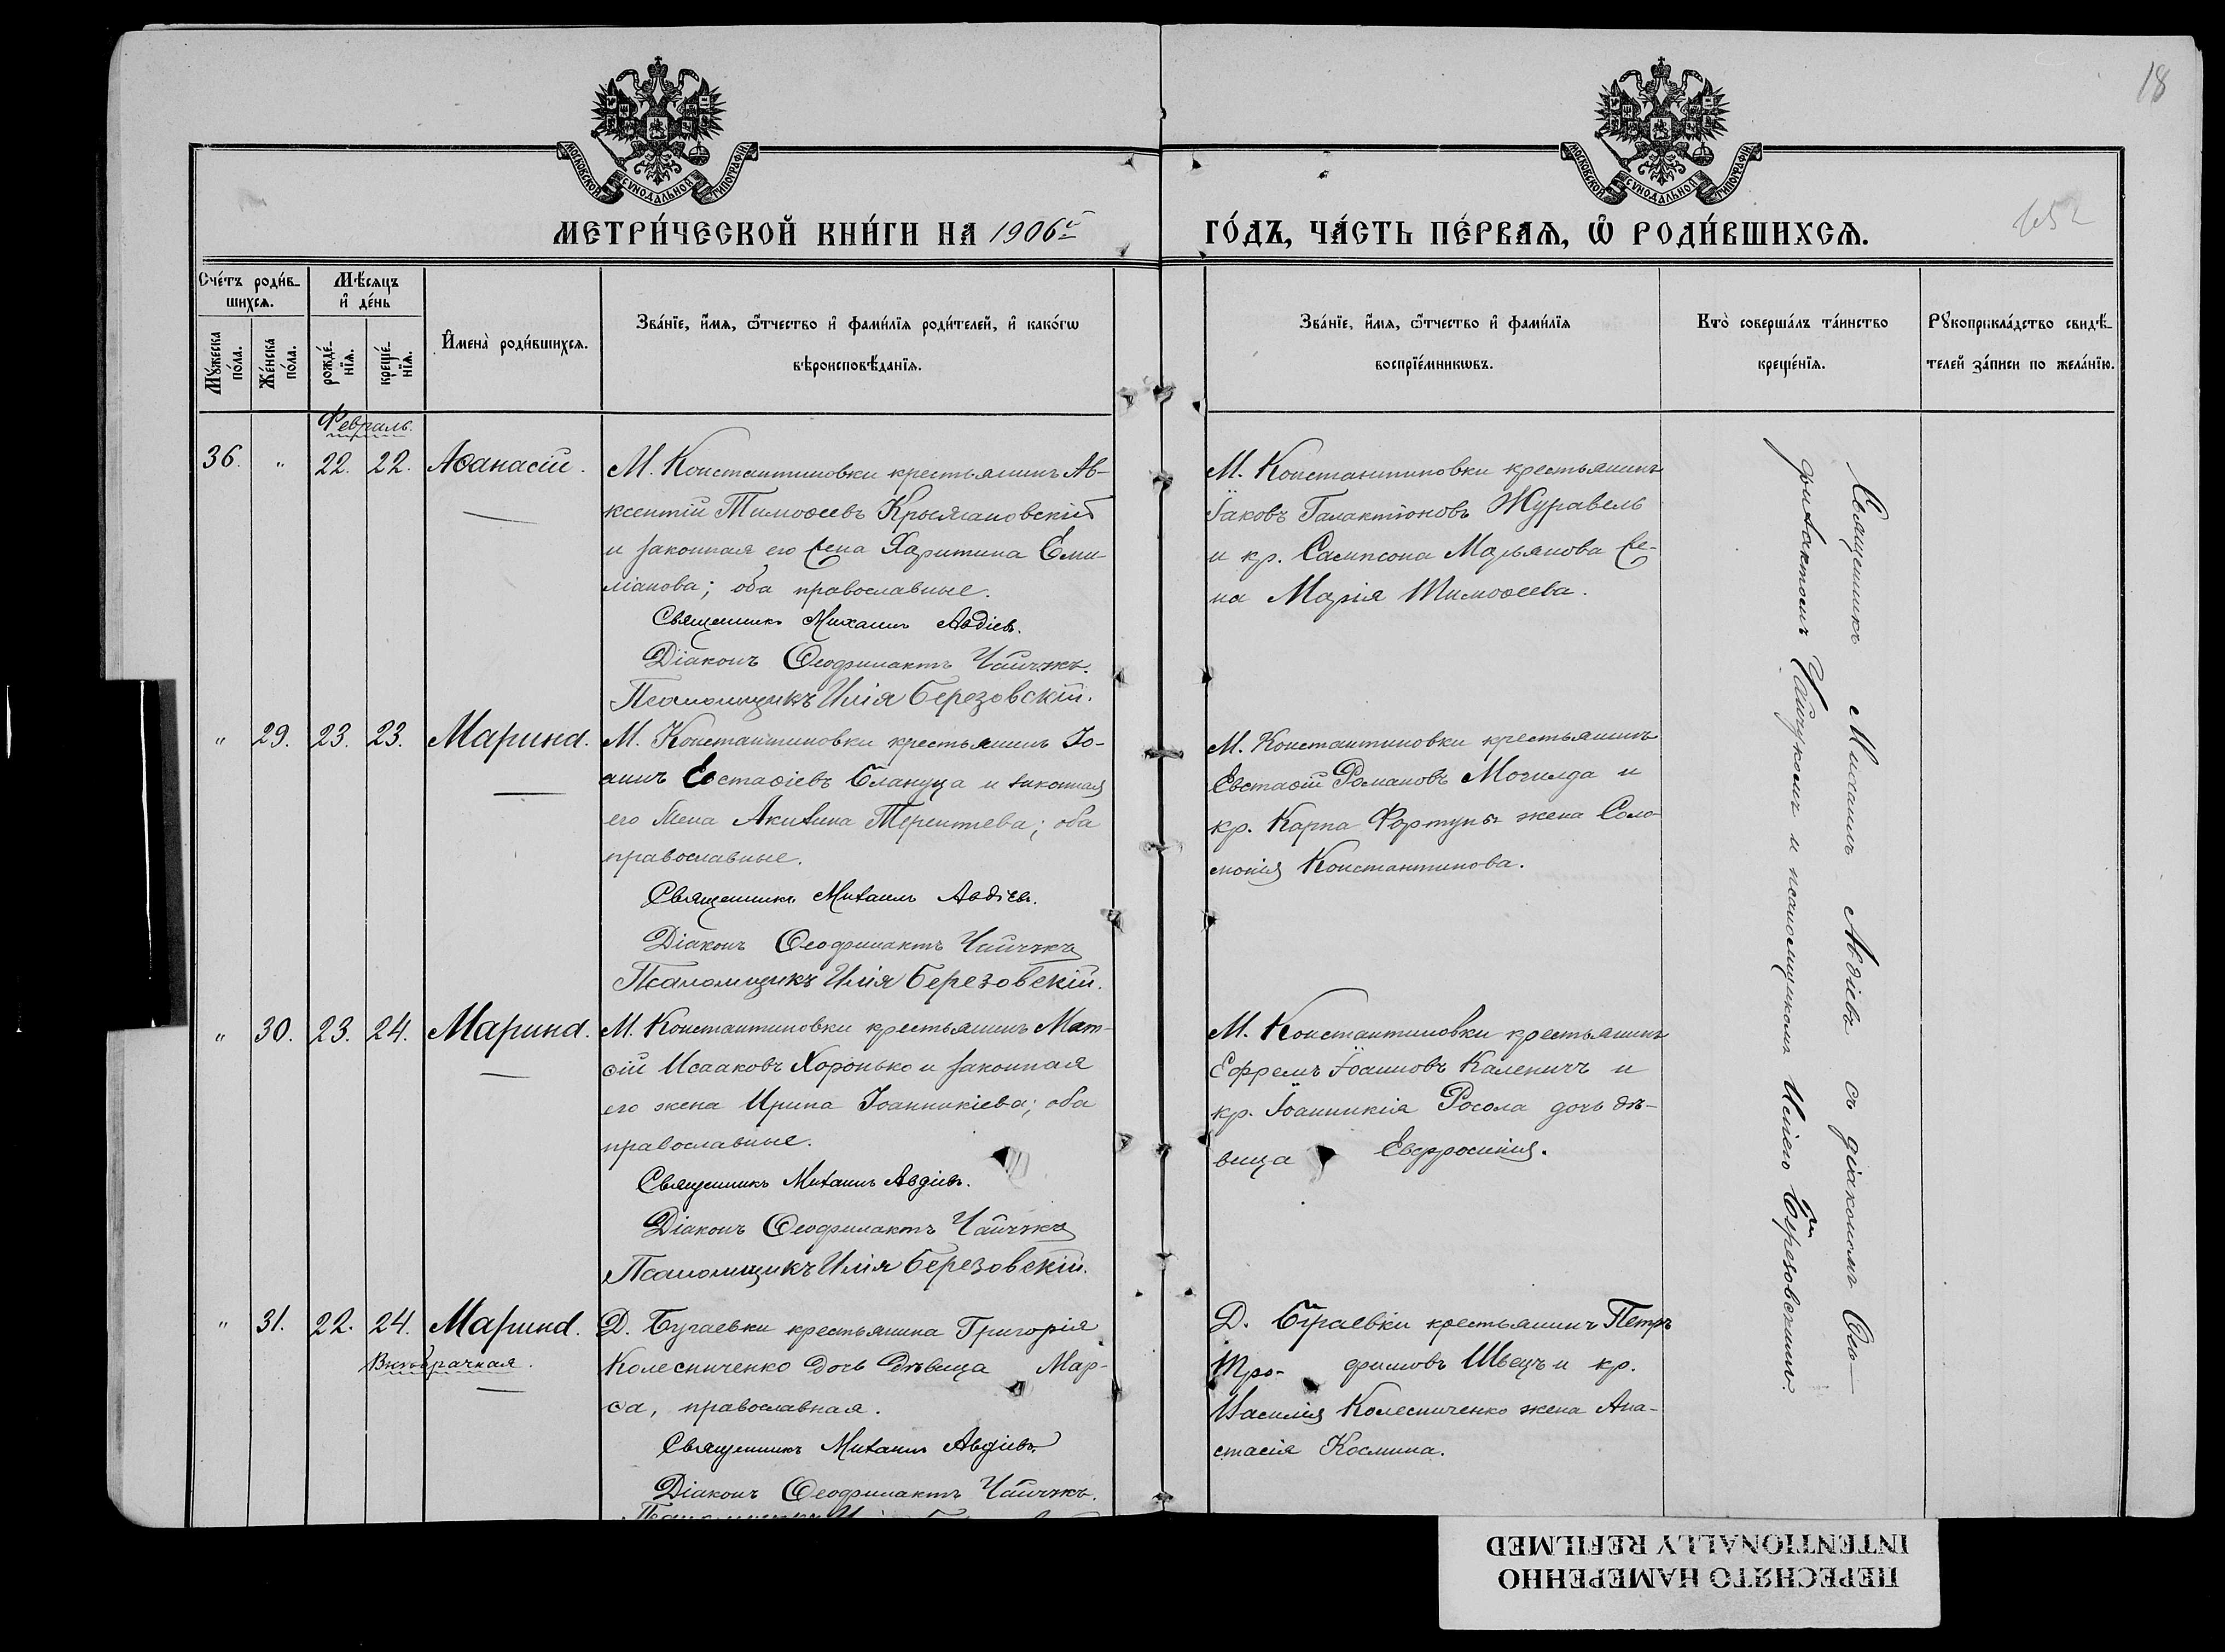 18
МОСКОВСКОЙ СѴНОДАЛЬНОЙ ТИПОГРАФІИ
МОСКОВСКОЙ СѴНОДАЛЬНОЙ ТИПОГРАФІИ
МЕТРИ́ЧЕСКОЙ КНИ́ГИ НА 1906й ГО́ДЪ, ЧА́СТЬ ПЕ́РВАѦ, Ѡ҆ РОДИ́ВШИХСѦ.
Сче́тъ роди́в-
шихсѧ.
Мѣ́сѧцъ
и҆ де́нь
Мꙋ́жеска
по́ла.
Же́нска
по́ла.
рожде́-
нїѧ.
креще́-
нїѧ.
И҆мена̀ роди́вшихсѧ.
Зва́нїе, и҆́мѧ, ѻ҆́тчество и҆ фами́лїѧ роди́телей, и҆ како́гѡ
вѣроисповѣ́данїѧ.
Зва́нїе, и҆́мѧ, ѻ҆́тчество и҆ фами́лїѧ
воспрїе́мникѡвъ.
Кто̀ соверша́лъ та́инство
креще́нїѧ.
Рꙋкоприкла́дство свидѣ́-
телей за́писи по жела́нїю.
Февраль.
36. " 22. 22. Аѳанасій.
М. Константиновки крестьянинъ Ав-
ксентій Тимоѳеевъ
и законная его жена Харитина Еми-
ліанова; оба православные.
Священникъ Михаилъ Авдіевъ.
Діаконъ Ѳеофилактъ Чайчукъ.
Псаломщикъ Илія Березовскій.
М. Константиновки крестьянинъ
Іаковъ Галактіоновъ Журавель
и кр. Сампсона Марьянова же-
на Марія Тимоѳеева.
" 29. 23. 23. Марина.
М. Константиновки крестьянинъ Іо-
аннъ Евстаѳіевъ Слануца и законная
его жена Акилина Терентіева; оба
православные.
Священникъ Михаилъ Авдіевъ.
Діаконъ Ѳеофилактъ Чайчукъ
Псаломщикъ Илія Березовскій.
М. Константиновки крестьянинъ
Евстаѳій Романовъ Могилда и
кр. Карпа Фортуны жена Соло-
монія Константинова.
" 30. 23. 24. Марина.
М. Константиновки крестьянинъ Мат-
ѳій Исааковъ Хоронько и законная
его жена Ирина Іоанникіева; оба
православные.
Священникъ Михаилъ Авдіевъ.
Діаконъ Ѳеофилактъ Чайчукъ
Псаломщикъ Илія Березовскій.
М. Константиновки крестьянинъ
Ефремъ Іоанновъ Каленичъ и
кр. Іоанникія Росола дочь дѣ-
вица Евфросинія.
" 31. 22. 24. Марина.
Внѣбрачная.
Д. Бугаевки крестьянина Григорія
Колесниченко дочь дѣвица Мар-
ѳа, православная.
Священникъ Михаилъ Авдіевъ
Діаконъ Ѳеофилактъ Чайчукъ.
Псаломщикъ Илія Березовскій
Д. Бугаевки крестьянинъ Петръ
Тро- фимовъ Швецъ и кр.
Василія Колесниченко жена Ана-
стасія Космина.
Священникъ Михаилъ Авдіевъ съ діакономъ Ѳео-
филактомъ Чайчукомъ и псаломщикомъ Иліею Березовскимъ.
ПЕРЕСНЯТО НАМЕРЕННО
INTENTIONALLY REFILMED